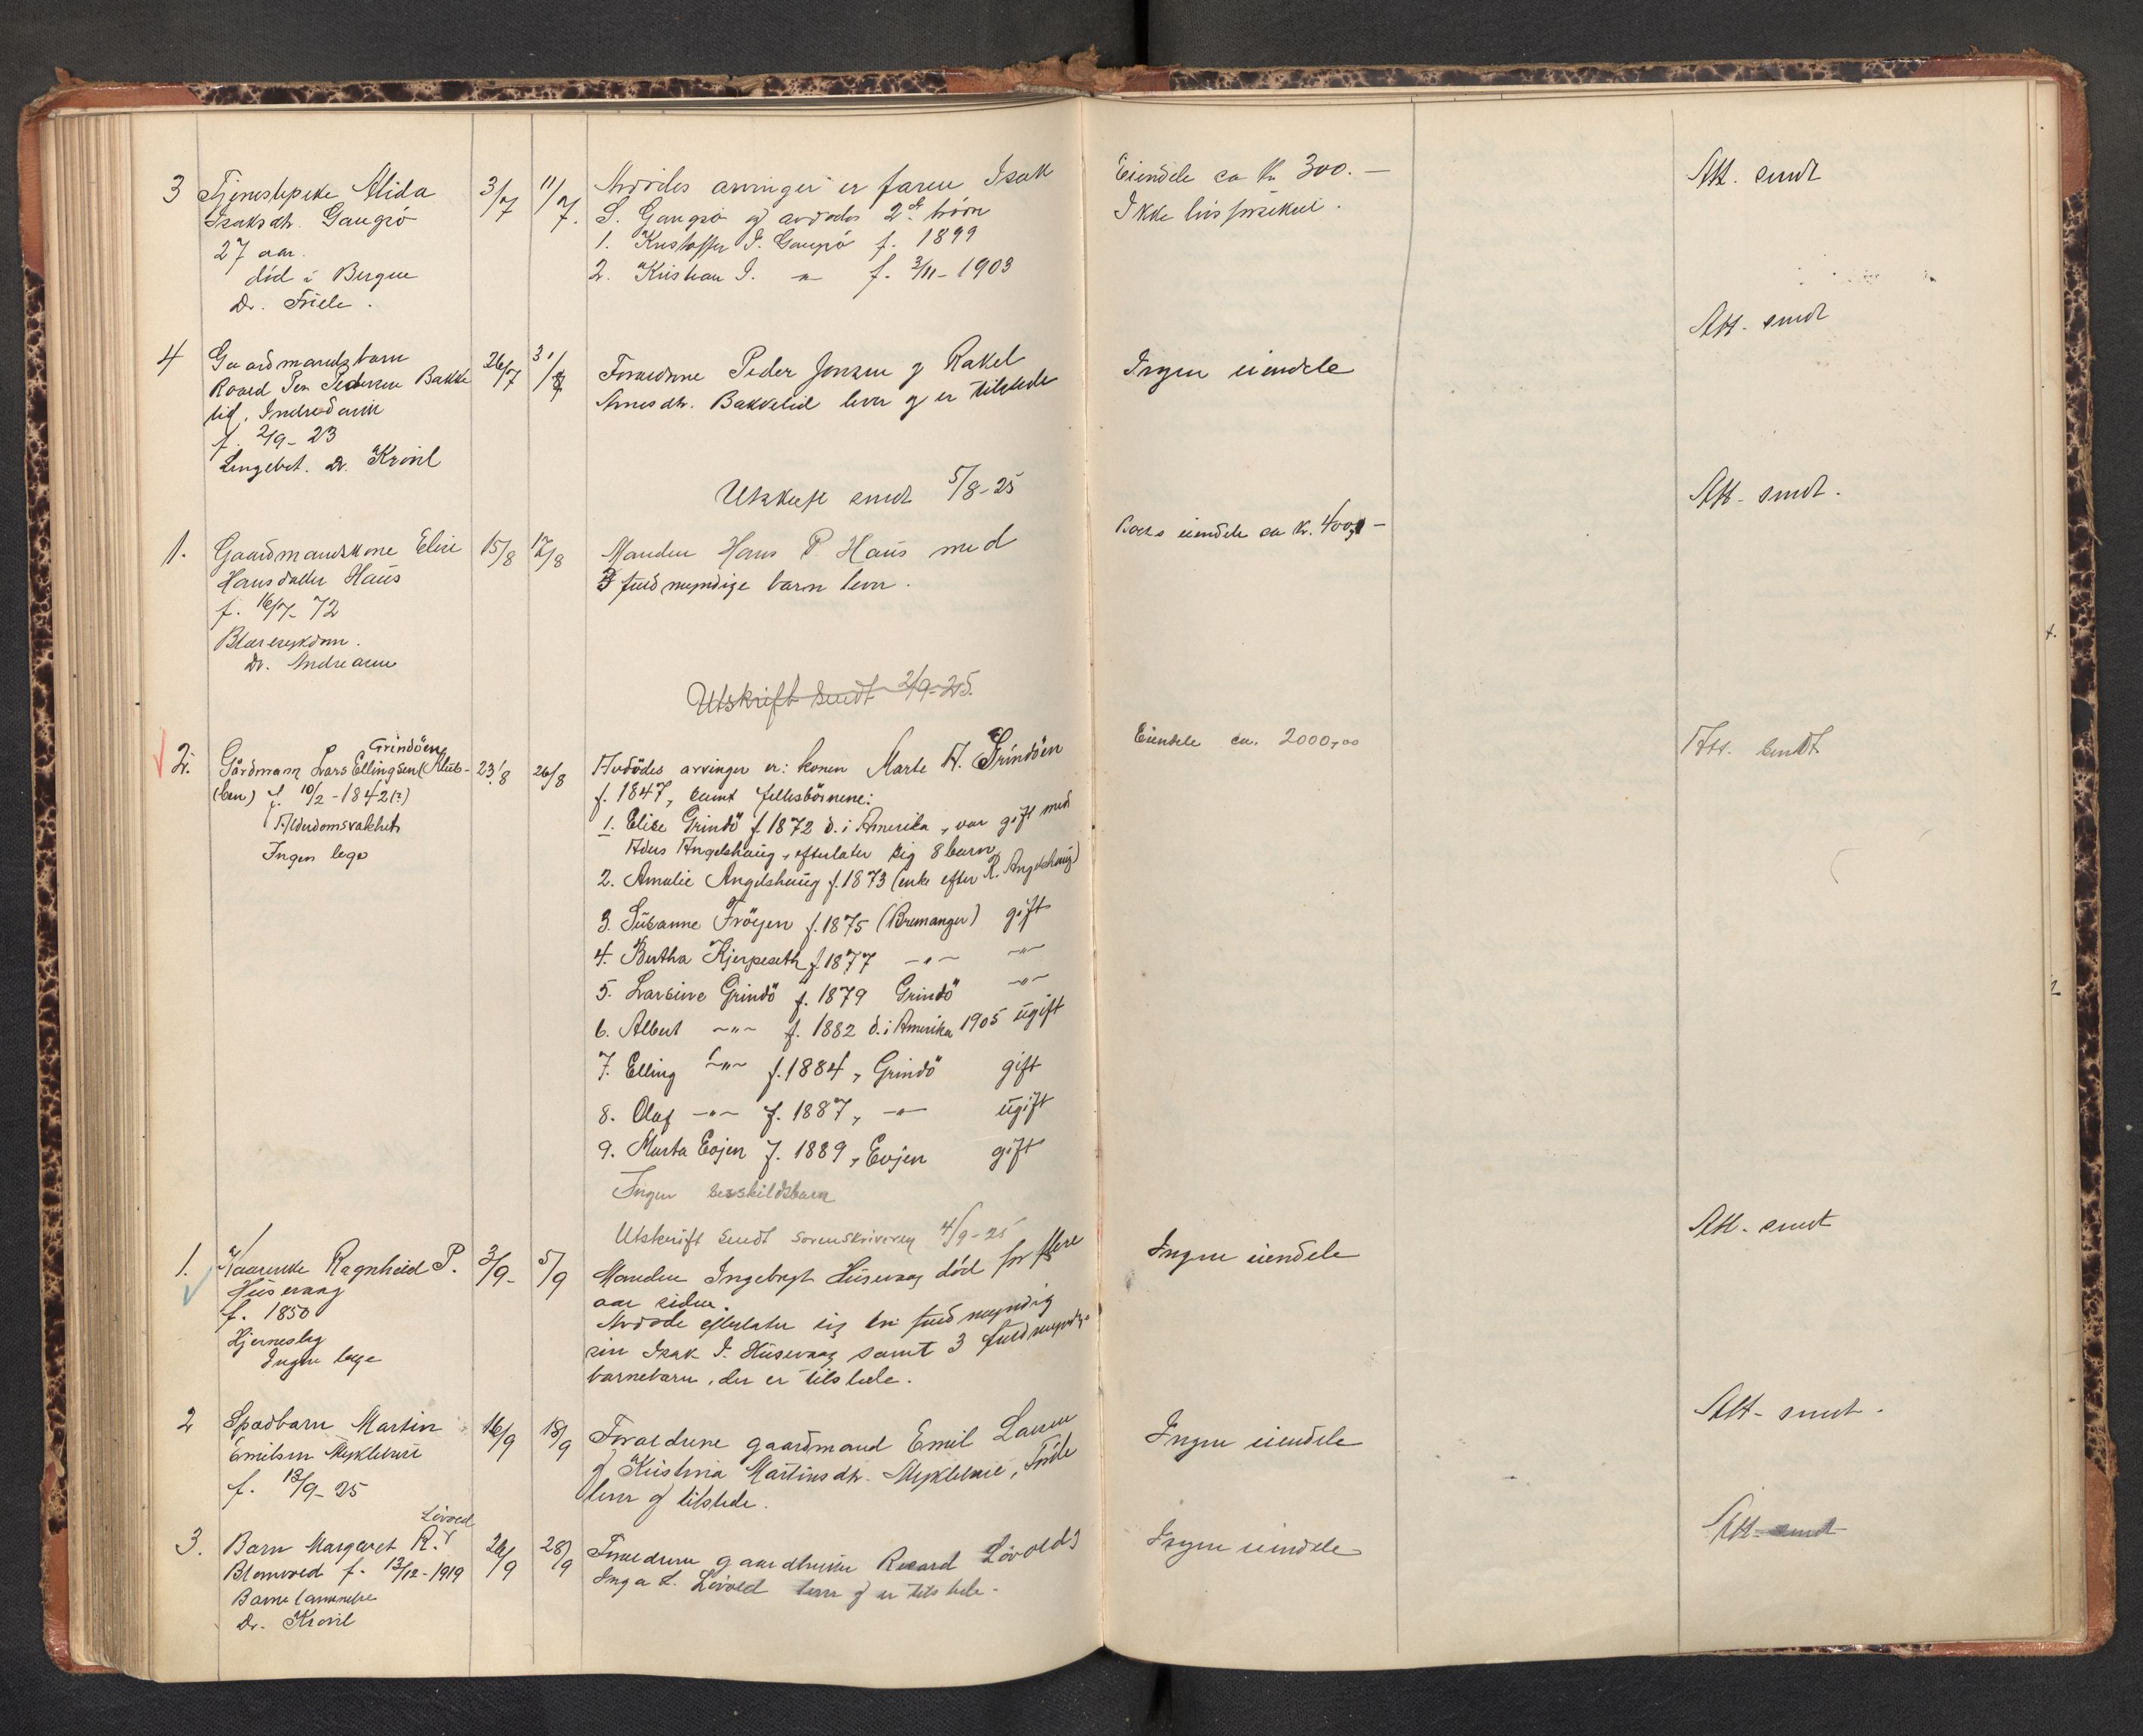 3 Tjenestepike Alida 3/7 11/7. Avdødes arvinger er faren Isak Eiendele ca kr 300.— Att. sendt
Isaksdtr. Gangsö S. Gangsö og avdødes 2de brörn Ikke livsforsikret.
27 aar. 1. Kristoffer I. Gangsö f. 1899
død i Bergen 2. Kristian I. —"— f. 3/11-1903
Dr. Friele.
4 Gaardmandsbarn 26/7 31/7 Foreldrene Peder Jonsen og Rakel Ingen eiendele Att. sendt
Roald Pedersen Bakke
lid, Indredavik Arnesdtr. Bakkelid lever og er tilstede
f. 2/9-23
Lungebet. Dr. Krovil
Utskrift sendt 5/8-25
1. Gaardmandskone Elise 15/8 17/8 Manden Hans P. Haus med Boets eiendele ca kr. 400,- Att. sendt.
Hansdatter Haus 3 fuldmyndige barn lever.
f. 16/7-72
Blæresykdom.
Dr. Andreasen
Utskrift sendt 2/9-25.
2. Gårdmann Lars Ellingsen (Klub- Grindöen 23/8 26/8 Avdödes arvinger er: konen Marte A. Grindöen Eiendele ca. 2000,00 Att. sendt
(ben) f. 10/2-1842(?) f. 1847, samt fellesbörnene:
Alderdomsvakhet 1. Elise Grindö f. 1872 d. i Amerika, var gift med
Ingen lege Anders Angelshaug, efterlater sig 8 barn
2. Amalie Angelshaug f. 1873 (enke efter R. Angelshaug)
3. Susanne Fröyen f. 1875 (Bremanger) gift
4. Bertha Kjerpeseth f. 1877 —"— —"—
5. Larsine Grindö f. 1879 Grindö —"—
6. Albert —"— f. 1882 d. i Amerika 1905 ugift
7. Elling —"— f. 1884, Grindö gift
8. Olaf —"— f. 1887, —"— ugift
9. Marta Evjen f. 1889, Evjen gift
Ingen særskildsbarn
Utskrift sendt sorenskriveren 4/9-25
1. Kaarenke Ragnheid P. 3/9- 5/9 Manden Ingebrigt Husevaag död for flere Ingen eiendele Att. sendt
Husevaag aar siden.
f. 1850 Avdöde efterlater sig en fuldmyndig
Hjerneslag sön Isak I. Husevaag samt 3 fuldmyndige
Ingen læge barnebarn, der er tilstede.
2 Spædbarn Martin 16/9 18/9 Forældrene gaardmand Emil Larsen Ingen eiendele Att. sendt.
Emilsen Myklebust og Kristina Martinsdtr. Myklebust,
f. 13/9-25 lever og tilstede.
3. Barn Margaret R. Lövold 26/9 28/9 Foreldrene gaardbruker Rikard Lövold og Ingen eiendele Att. sendt
f. 13/12-1919 Inga L. Lövold lever og er tilstede.
Barnelammelse
Dr. Krovil